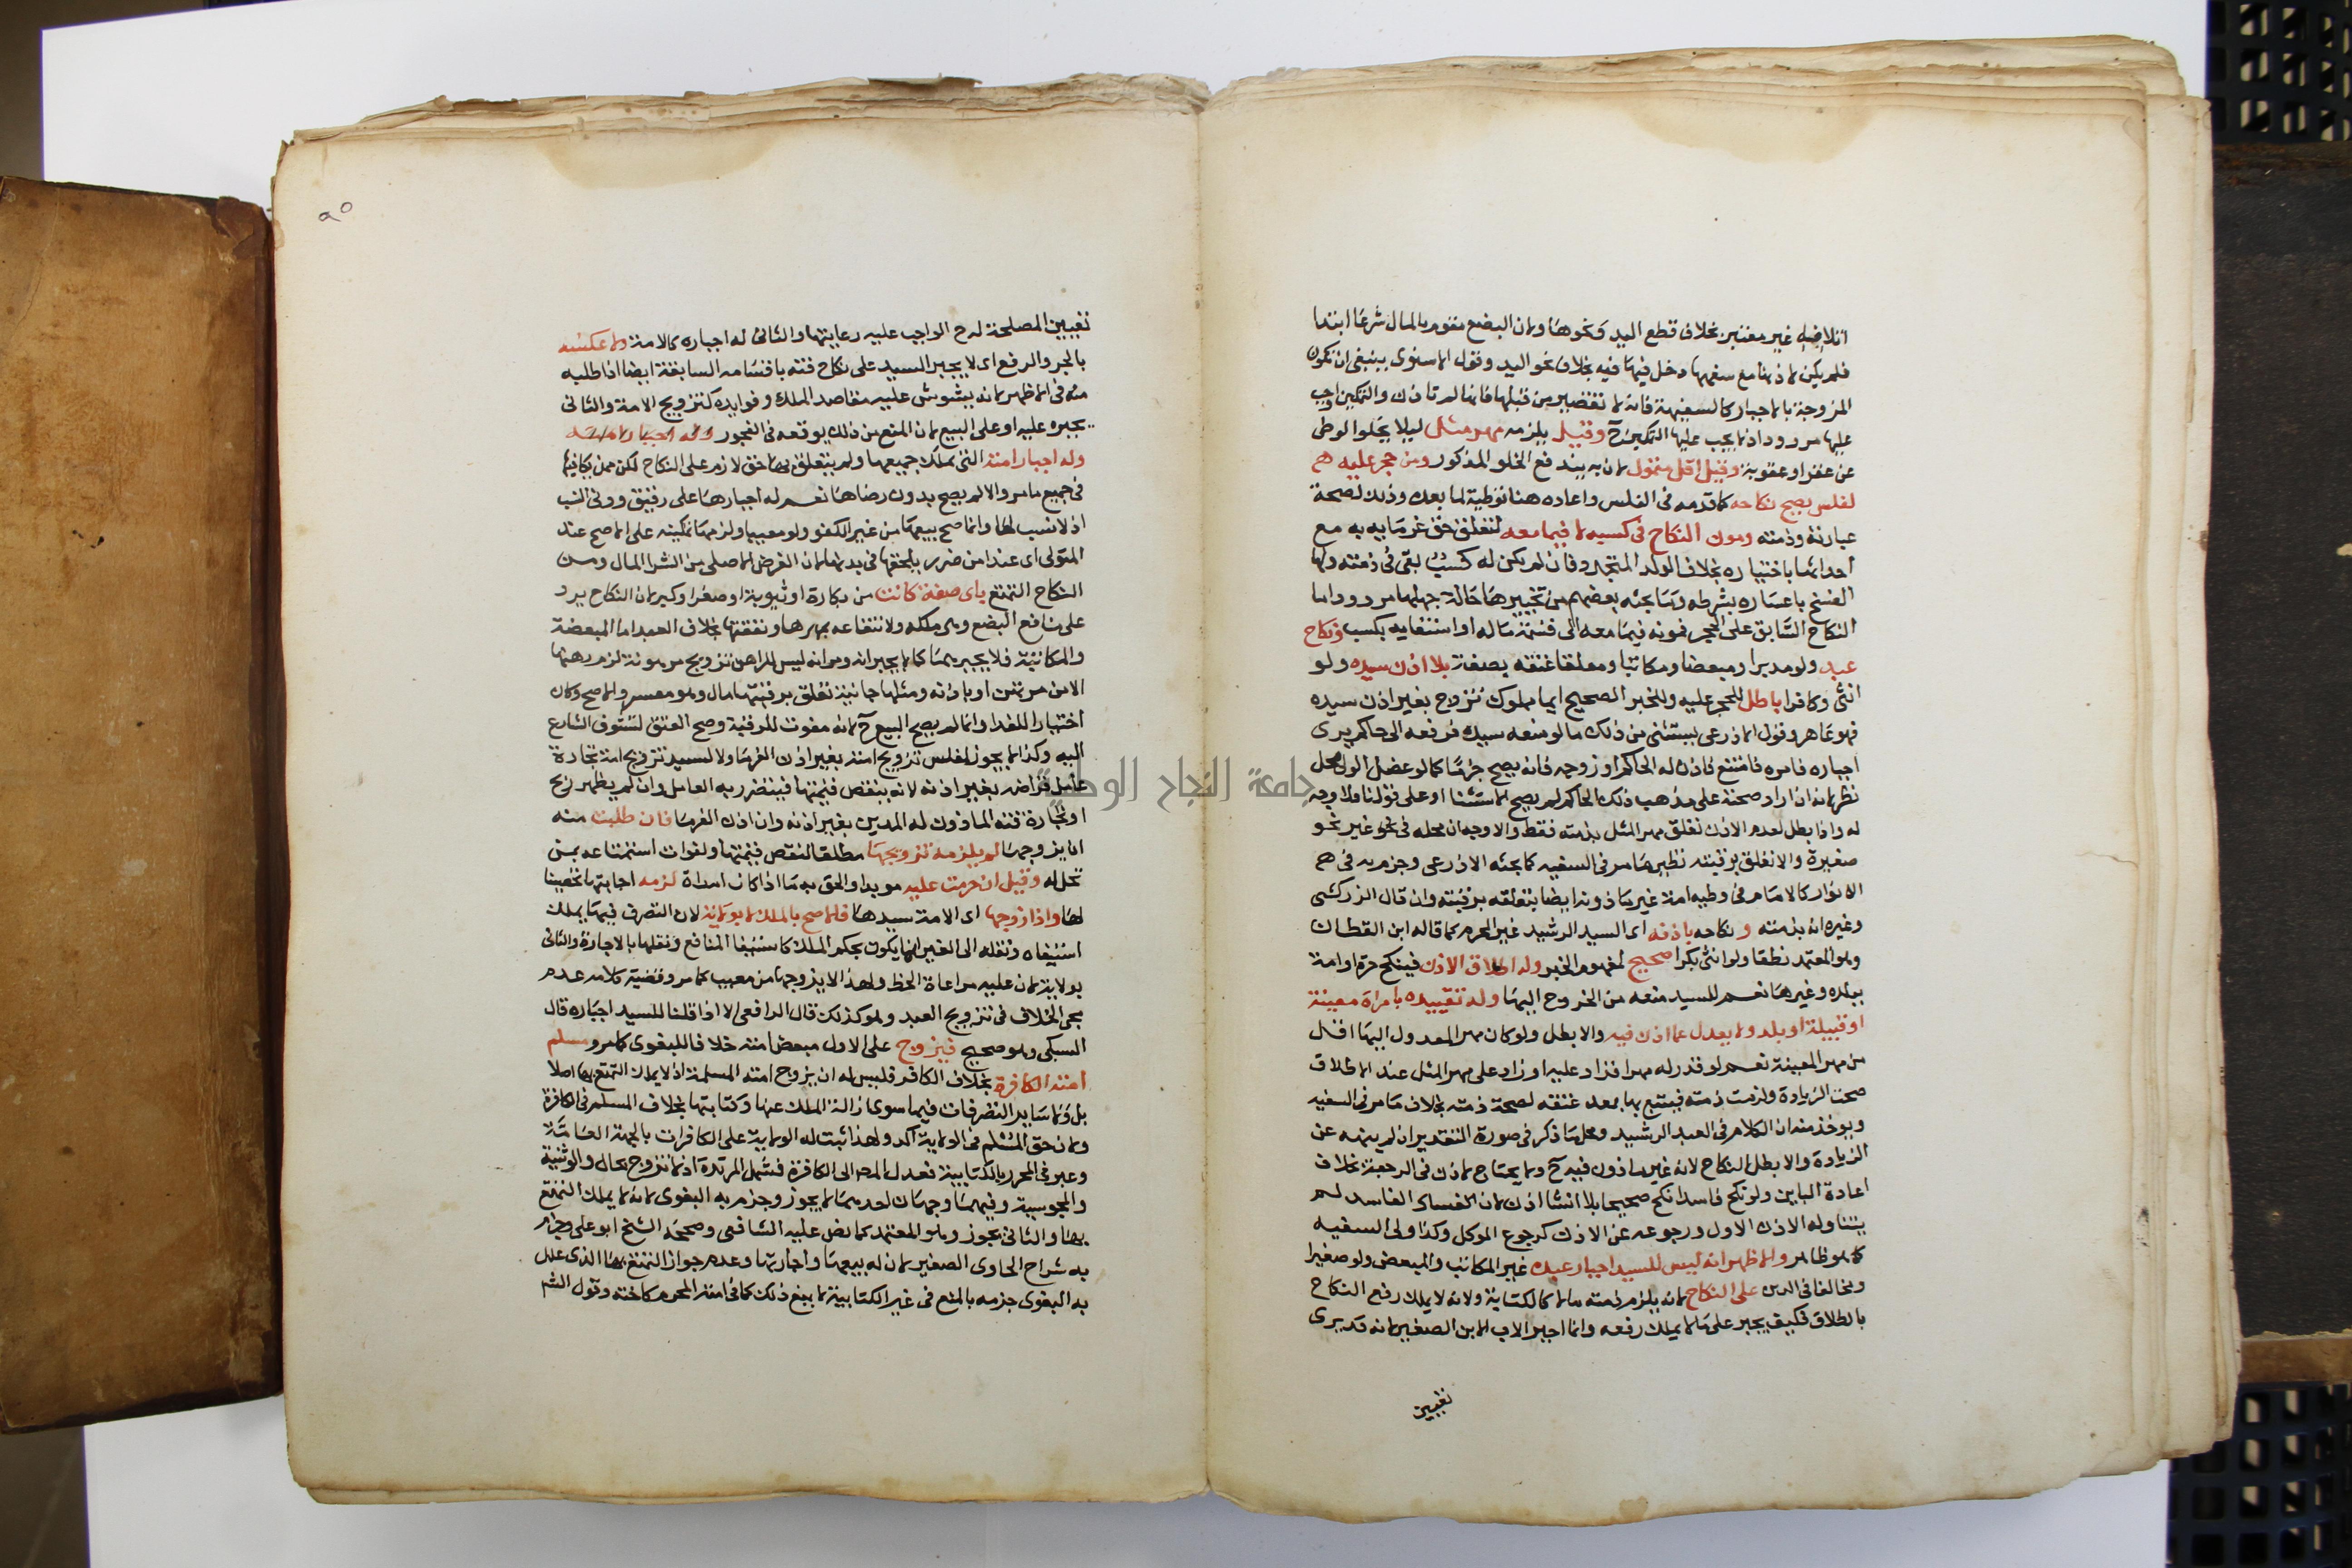 اتلافه غير معتبر بخلاف قطع اليد ونحوها ولان البضع متقوم بالمال شرعا ابتدا
فلم يكن لاذنها مع سفهها دخل فيها فيه بخلاف نحو اليد وقول الاسنوي ينبغي ان تكون
المزوجة بالاجبار كالسفيهة فانه لا تقصير من قبلها فانها لم تاذن والتمكين واجب
عليها مردود اذ لا يجب عليها التمكين ح وقيل يلزمه مهر مثل ليلا يخلوا الوطي
عن عقر او عقوبة وقيل اقل متمول لان به يندفع الخلو المذكور ومن حجر عليه هم
لفلس يصح نكاحه كما قدمه في الفلس واعاده هنا توطية لما بعده وذلك لصحة
عبارته وذمته ومون النكاح في كسبه لا فيما معه لتعلق حق غرمايه به مع
احداثها باختياره بخلاف الولد المتجدد فان لم يكن له كسب بقي في ذمته ولها
الفسخ باعساره بشرطه وما بحثه بعضهم من تخييرها حالة جهلها مردود اما
النكاح السابق على الحجر فمونه فيما معه الى قسمة ماله او استغنايه بكسب ونكاح
عبد ولو مدبرا ومبعضا ومكاتبا ومعلقا عتقه بصفة بلا اذن سيده ولو
انثى وكافرا باطل للحجر عليه وللخبر الصحيح ايما مملوك تزوج بغير اذن سيده
فهو عاهر وقول الاذرعي يستثنى من ذلك ما لو منعه سيده فرفعه الى حاكم يرى
اجباره فامره فامتنع فاذن له الحاكم او زوجه فانه يصح جزما كما لو عضل الولي محل
نظر لانه ان اراد صحته على مذهب ذلك الحاكم لم يصح الاستثنا او على قولنا فلا وجه
له واذا بطل لعدم الاذن تعلق مهر المثل بذمته فقط والاوجه ان محله في نحو غير نحو
صغيرة والا تعلق برقبته نظير ما مر في السفيه كما بحثه الاذرعي وجزم به في هم
الانوار كالامام في وطيه امة غير ماذونه ايضا يتعلقه برقبته وان قال الزركشي
وغيره انه بذمته ونكاحه باذنه اى السيد الرشيد غير المحرم كما قاله ابن القطان
وهو المعتمد نطقا ولو انثى بكرا صحيح لمفهوم الخبر وله اطلاق الاذن فينكح حرة او امة
ببلده وغيرها نعم للسيد منعه من الخروج اليها وله تقييده بامراة معينة
او قبيلة او بلد ولا يعدل عما اذن فيه والا بطل ولو كان مهر المعدول اليها اقل
من مهر المعينة نعم لو قدر له مهرا فزاد عليه او زاد على مهر المثل عند الاطلاق
صحت الزيادة ولزمت ذمته فيتبع بها بعد عتقه لصحة ذمته بخلاف ما مر في السفيه
ويوخذ منه ان الكلام في العبد الرشيد ومحل ما ذكر في صورة التقدير ان لم ينهه عن
الزيادة والا بطل النكاح لانه غير ماذون فيه ح ولا يحتاج لاذن في الرجعة بخلاف
اعادة الباين ولو نكح فاسدا نكح صحيحا بلا انشا اذن لان الفساد الفاسد لم
يتناوله الاذن الاول ورجوعه عن الاذن كرجوع الموكل وكذا ولي السفيه
كما هو ظاهر والاظهر انه ليس للسيد اجبار عبده غير المكاتب والمبعض ولو صغيرا
ومخالفا في الدين على النكاح لانه يلزم ذمته مالا كالكتابة ولانه لا يملك رفع النكاح
بالطلاق فكيف يجبر على ما لا يملك رفعه وانما اجبر الاب الابن الصغير لانه قد يرى
تعيين
٩٥
تعيين المصلحة له ح الواجب عليه رعايتها والثاني له اجباره كالامة ولا عكسه
بالجر والرفع اى لا يجبر السيد على نكاح قنه باقسامه السابقة ايضا اذا طلبه
منه في الاظهر لانه يشوش عليه مقاصد الملك وفوايده كتزويج الامة والثاني
يجبره عليه او على البيع لان المنع من ذلك يوقعه في الفجور وله اجبار امته
وله اجبار امته التي يملك جميعها ولم يتعلق بها حق لازم على النكاح لكن ممن يكافيها
في جميع ما مر والا لم يصح بدون رضاها نعم له اجبارها على رقيق ودني النسب
اذ لا نسب لها وانما صح بيعها من غير الكفو ولو معيبا ولزمها تمكينه على الاصح عند
المتولي اى عند امن ضرر يلحقها في بدنها لان الغرض الاصلي من الشرا المال ومن
النكاح التمتع باى صفة كانت من بكارة او ثيوبة او صغر او كبر لان النكاح يرد
على منافع البضع وهى ملكه ولانتفاعه بمهرها ونفقتها بخلاف العبد اما المبعضة
والمكاتبة فلا يجبرهما كما لا يجبرانه ومر انه ليس للراهن تزويج مرهونة لزم رهنها
الا من مرتهن او باذنه ومثلها جانية تعلق برقبتها مال وهو معسر والاصح وكان
اختيارا للفدا وانما لم يصح البيع ح لانه مفوت للرقبة وصح العتق لتشوف الشارع
اليه وكذا لا يجوز لمفلس تزويج امته بغير اذن الغرما ولا لسيد تزويج امة تجارة
عامل قراضه بغير اذنه لانه ينقص قيمتها فيتضرر به العامل وان لم يظهر ربح
او تجارة قنه الماذون له المدين بغير اذنه وان اذن الغرما فان طلبت منه
ان يزوجها لم يلزمه تزويجها مطلقا لنقص قيمتها ولفوات استمتاعه بمن
تحل له وقيل ان حرمت عليه موبدا والحق به ما اذا كان امراة لزمه اجابتها تحصينا
لها واذا زوجها اى الامة سيدها فالاصح بالملك لا بولاية لان التصرف فيما يملك
استيفاه ونقله الى الغير انما يكون بحكم الملك كاستيفا المنافع ونقلها بالاجارة والثاني
بولاية لان عليه مراعاة الحظ ولهذا لا يزوجها من معيب كما مر وقضية كلامه عدم
مجي الخلاف في تزويج العبد وهو كذلك قال الرافعي الا اذا قلنا للسيد اجباره قال
السبكي وهو صحيح فيزوج على الاول مبعض امته خلافا للبغوى كما مر ومسلم
امته الكافرة بخلاف الكافر فليس له ان يزوج امته المسلمة اذ لا يملك التمتع بها اصلا
بل ولا ساير التصرفات فيها سوى ازالة الملك عنها وكتابتها بخلاف المسلم في الكافرة
ولان حق المسلم في الولاية اكد ولهذا ثبت له الولاية على الكافرات بالجهة العامة
وعبر في المحرر بالكتابية فعدل المص الى الكافرة فشمل المرتدة اذ لا تزوج بحال والوثنية
والمجوسية وفيهما وجهان احدهما لا يجوز وجزم به البغوى لانه لا يملك التمتع
بها والثاني يجوز وهو المعتمد كما نص عليه الشافعي وصححه الشيخ ابو على وجزم
به شراح الحاوى الصغير لان له بيعها واجارتها وعدم جواز التمتع بها الذى علل
به البغوى جزمه بالمنع في غير الكتابية لا يمنع ذلك كما في امته المحرم كاخته وقول الشم
جامعة النجاح الوطنية